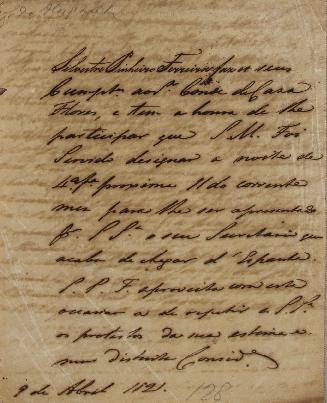 Silvestre Pinheiro Ferreira faz os seus
Cumptos ao Sr. Conde de Casa
Flores, e tem a honra de lhe
participar que S. M. Foi
Servido designar a noite de
4ª fa proxima 11 do corrente
mez para lhe ser apresentado
por S. Sª o seu Secretario que
acaba de chegar d'Espanha.
S. P. F. aproveita com este
occasião a de repetir a S. Sª
os protestos da sua estima e
mui distincta Consid.
9 de Abril 1821.
128